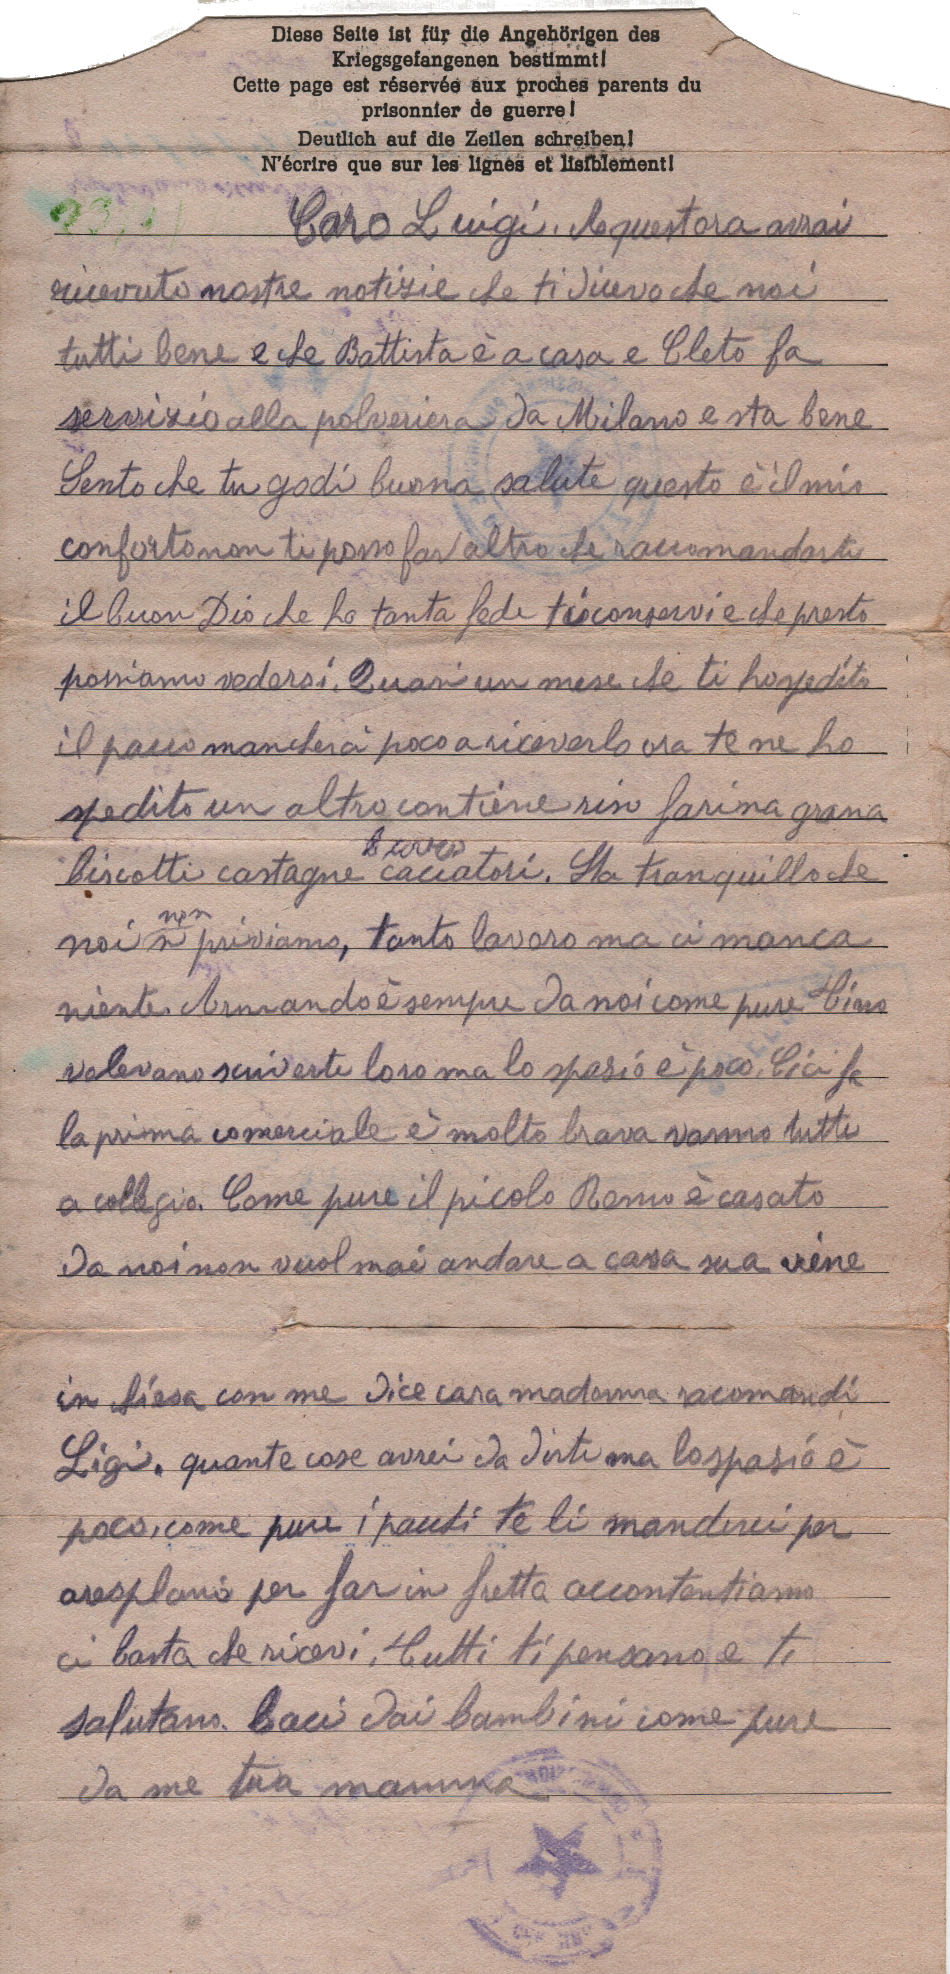 Diese Seite ist für die Angehörigen des
Kriegsgefangenen bestimmt!
Cette page est réservée aux proches parents du
prisonnier de guerre!
Deutlich auf die Zeilen schreiben!
N'écrire que sur les lignes et lisiblement!
Caro Luigi. A quest ora avrai
ricevuto nostre notizie che ti dicevo che noi
tutti bene e che Battista è a casa e Cleto fa
servizio alla polveriera da Milano e sta bene
Sento che tu godi buona salute questo è il mio
conforto non ti posso far altro che raccomandarti
il buon Dio che ho tanta fede ti conservi e che presto
possiamo vedersi. Quasi un mese che ti ho spedito
il pacco mancherà poco a riceverlo ora te ne ho
spedito un altro contiene riso farina grana
biscotti castagne burro cacciatori. Sta tranquillo che
noi non priviamo, tanto lavoro ma ci manca
niente. Armando è sempre da noi come pure Tino
volevano scriverti loro ma lo spasió è poco. Cici fa
la prima comerciale è molto brava vanno tutti
a collegio. Come pure il picolo Remo è casato
da noi non vuol mai andare a casa sua viene
in chiesa con me dice cara madonna racomandi
Ligi. quante cose avrei da dirti ma lo spasió è
poco, come pure i pacchi te li manderei per
aresplano per far in fretta accontentiamo
ci basta che ricevi. Tutti ti pensano e ti
salutano. Baci dai bambini come pure
da me tua mamma